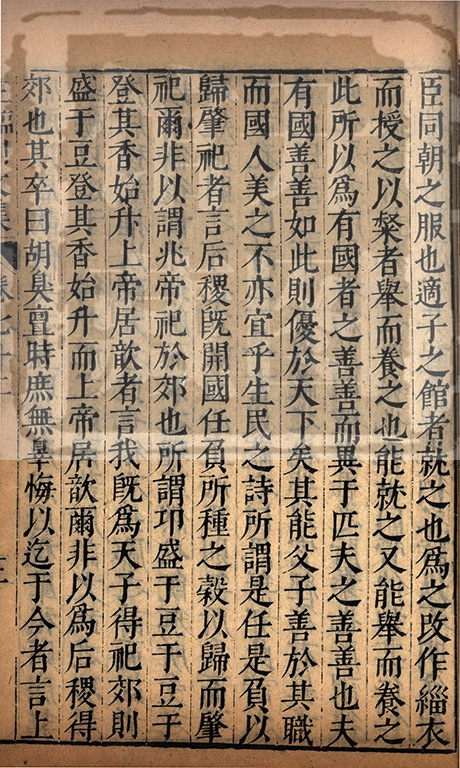 臣同朝之服也適子之館者就之也爲之改作緇衣
而授之以粲者舉而養之也能就之又能舉而養之
此所以爲有國者之善善而異于匹夫之善善也夫
有國善善如此則優於天下矣其能父子善於其職
而國人美之不亦宜乎生民之詩所謂是任是負以
歸肇祀者言后稷旣開國任負所種之穀以歸而肇
祀爾非以謂兆帝祀於郊也所謂卬盛于豆于豆于
登其香始升上帝居歆者言我旣爲天子得祀郊則
盛于豆登其香始升而上帝居歆爾非以爲后稷得
郊也其卒曰胡臭亶時庶無辠悔以迄于今者言上